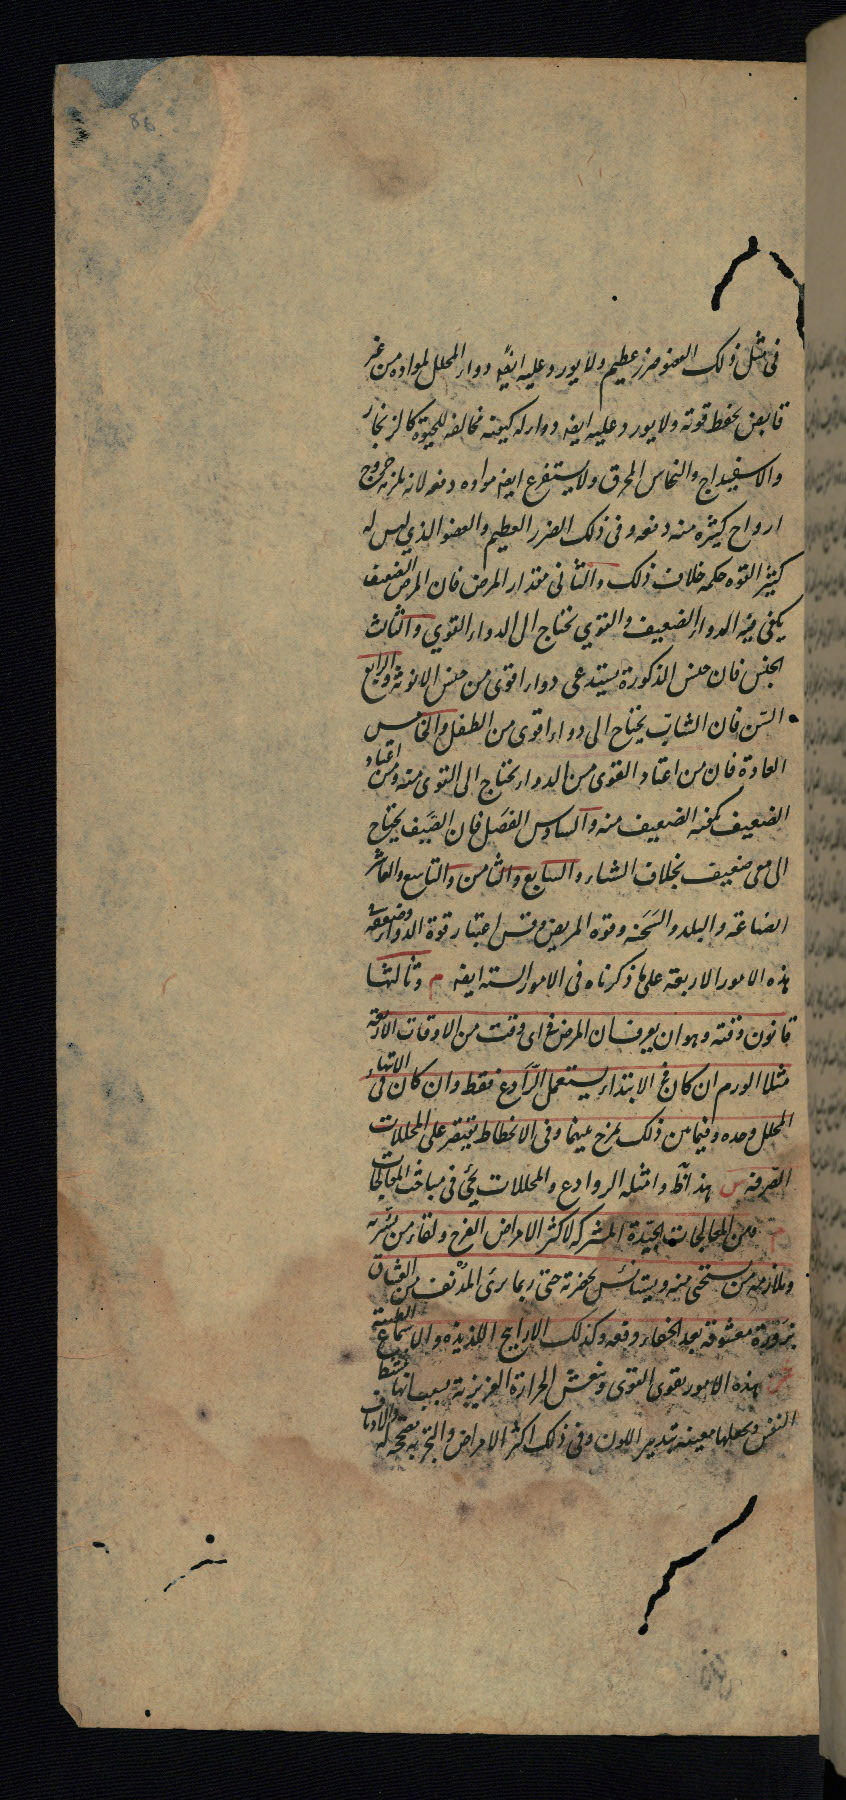 فى مثل ذلك العضو ضرر عظيم ولا يورد عليه ايضًا دواء المحلل لمواده من غير
قابض يحفظ قوته ولا يورد عليه ايضا دواء له كيفية مخالفه للحيوة كالزنجار
والاسفيداج والنحاس المحرق ولا يستفرغ ايضا مواده دفعه لانه يلزمه خروج
ارواح كثيره منه دفعه وفى ذلك الضرر العظيم والعضو الذي ليس له
كثير القوه حكمه خلاف ذلك والثانى مقدار المرض فان المرض الضعيف
يكفى فيه الدواء الضعيف والقوي يحتاج الى الدواء القوي والثالث
الجنس فان جنس الذكورة يستدعى دواء اقوى من جنس الانوثة والرابع
السّن فان الشابّ يحتاج الى دواء اقوى من الطفل والخامس
العادة فان من اعتاد القوى من الدواء يحتاج الى القوى منه ومن اعتاد
الضعيف كفته الضعيف منه والسادس الفصَل فان الصَّيف يحتاج
الى ضعيف بخلاف الشتاء والسابع والثامن والتاسع والعاشر
الصناعة والبلد والسَحَنه وقوه المريض وقس اعتبار قوة الدواء وضعفه
هذه الامور الاربعة على ما ذكرناه فى الامور السته ايضا م وثالثها
قانون وقته وهو ان يعرف ان المرض فى اى وقت من الاوقات الاربعة
مثلا الورم ان كان فى الابتداء يستعمل الرَّادع فقط وان كان فى الانتهاء
المحلل وحده وفيما بين ذلك يمزج بينهما وفى الانحطاط يقتصر على المحللات
الصّرفه س هذا ظ وامثله الروادع والمحللات يجئ فى مباحث المعالجات
م ومن المعالجات الجيّدة المشتركه لاكثر الامراض الفرح ولقاء من يَسُرّ به
وملازمه من يستحى منه ويستانَس بحضرته حتى ربما برئ المدْنَف من العشاق
بزَوْرة معشوقه بعد الجفاء دفعه وكذلك الاراييح اللذيذه والاسماع الطيبة
ش هذه الامور تقوى القوى وتنعش الحرارة الغريزية بسبب انها تنشط
النفس وتجعلها معينه تدبير البدن وفى ذلك اكثر الامراض والتجربه مصححه له